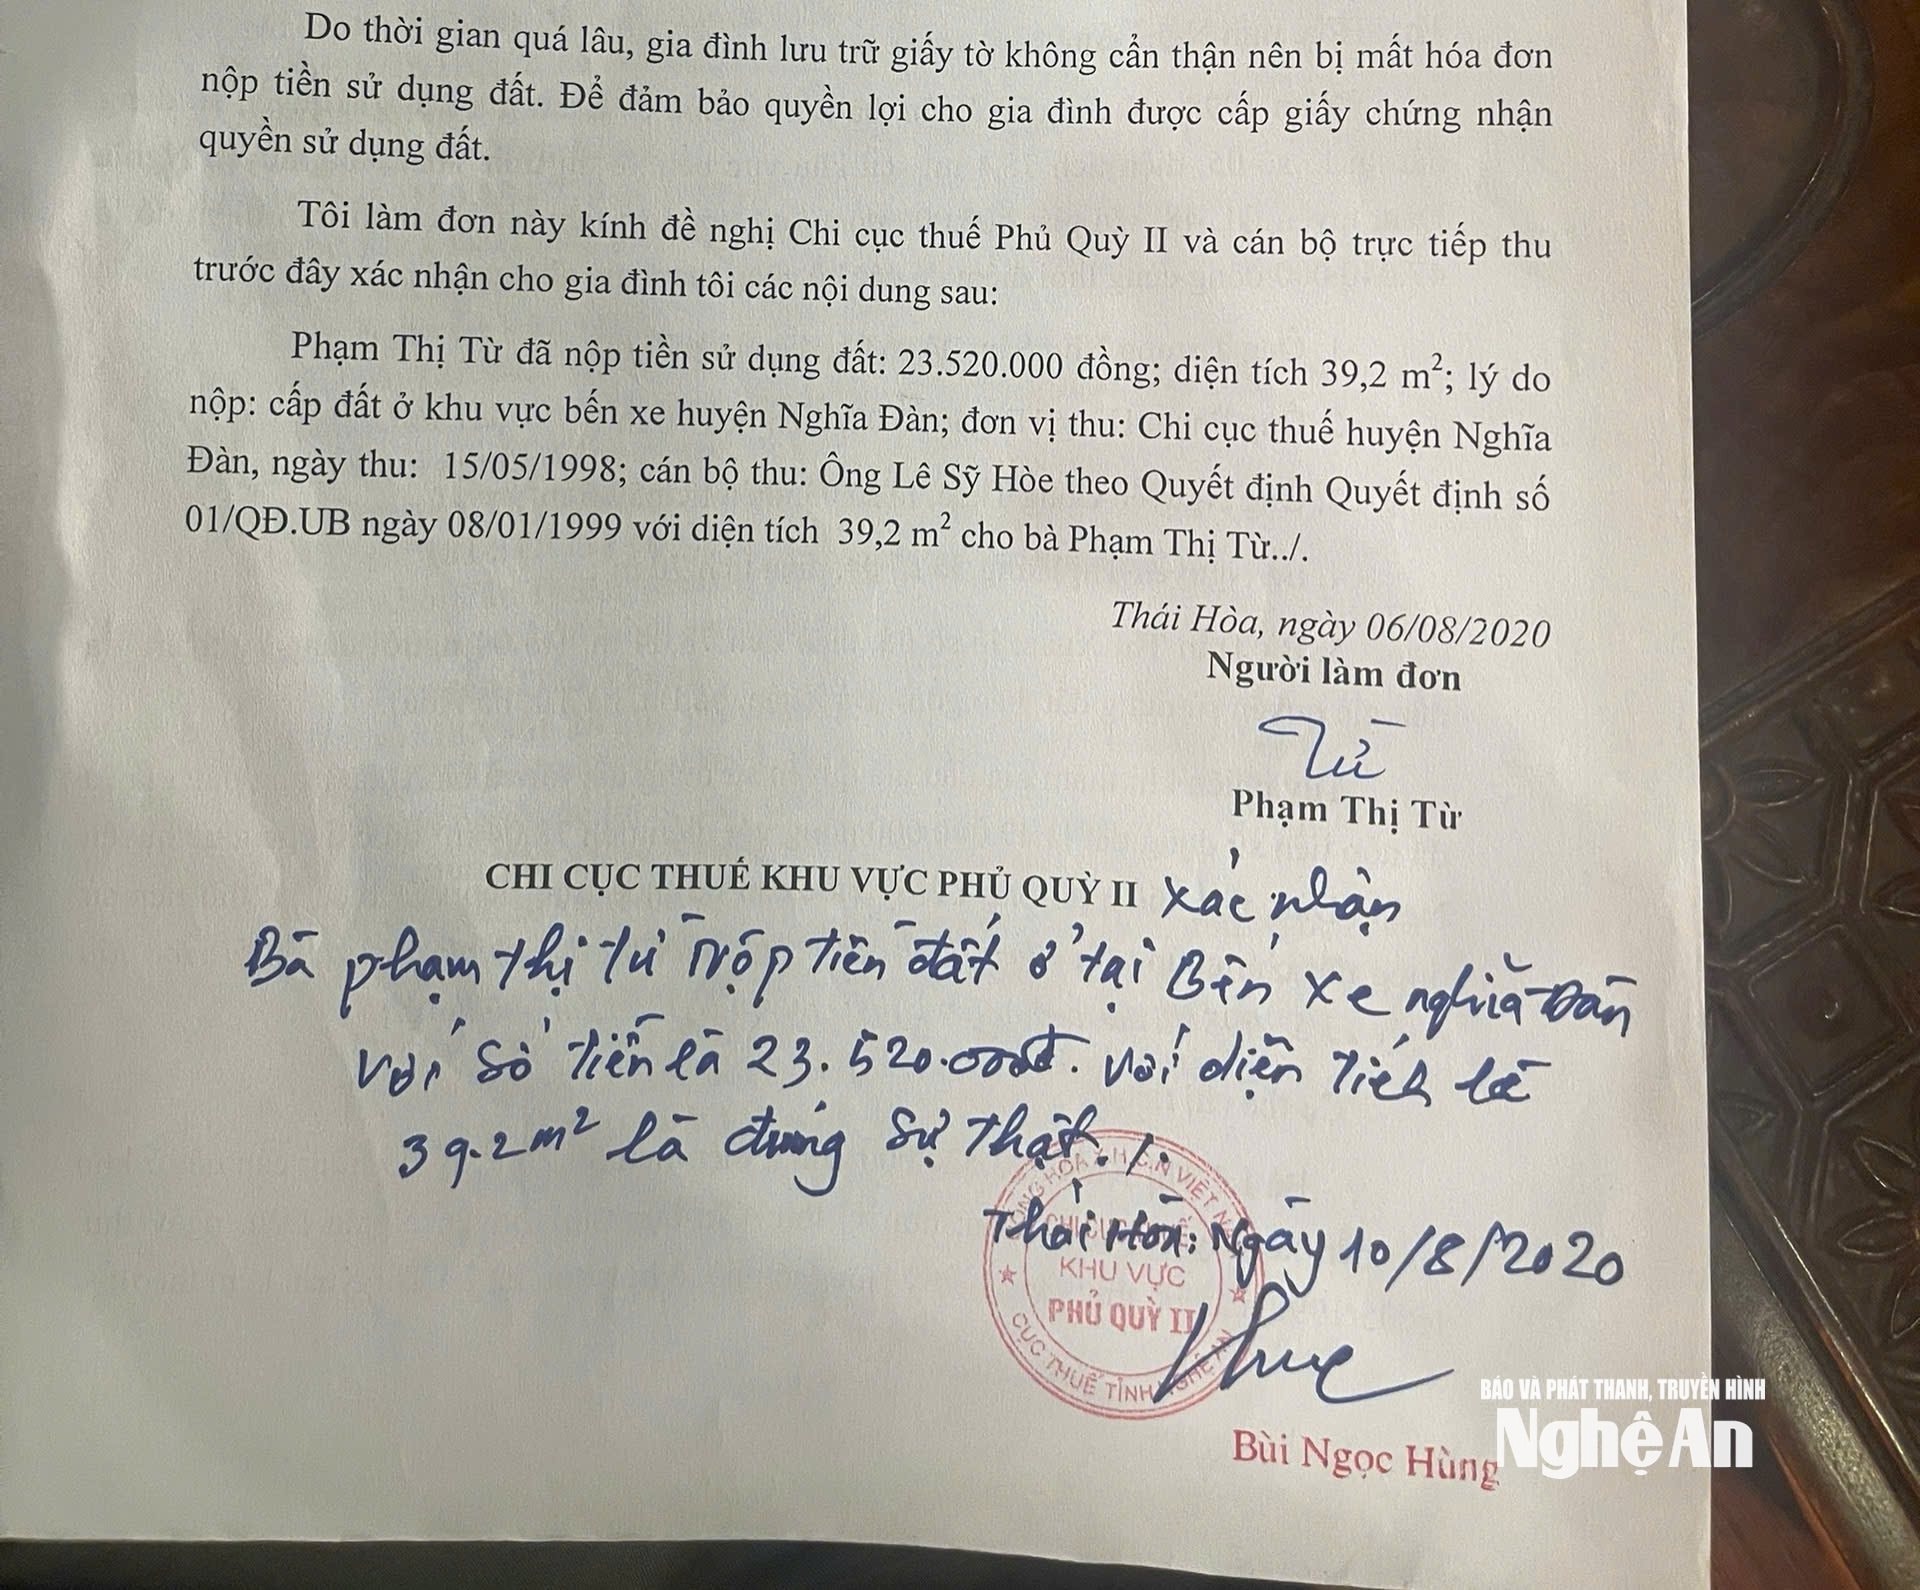 Do thời gian quá lâu, gia đình lưu trữ giấy tờ không cẩn thận nên bị mất hóa đơn
nộp tiền sử dụng đất. Để đảm bảo quyền lợi cho gia đình được cấp giấy chứng nhận
quyền sử dụng đất.
Tôi làm đơn này kính đề nghị Chi cục thuế Phủ Quỳ II và cán bộ trực tiếp thu
trước đây xác nhận cho gia đình tôi các nội dung sau:
Phạm Thị Từ đã nộp tiền sử dụng đất: 23.520.000 đồng; diện tích 39,2 m²; lý do
nộp: cấp đất ở khu vực bến xe huyện Nghĩa Đàn; đơn vị thu: Chi cục thuế huyện Nghĩa
Đàn, ngày thu: 15/05/1998; cán bộ thu: Ông Lê Sỹ Hòe theo Quyết định Quyết định số
01/QĐ.UB ngày 08/01/1999 với diện tích 39,2 m² cho bà Phạm Thị Từ../.
Thái Hòa, ngày 06/08/2020
Người làm đơn
Từ
Phạm Thị Từ
CHI CỤC THUẾ KHU VỰC PHỦ QUỲ II xác nhận
Bà phạm thị từ nộp tiền đất ở tại Bến xe nghĩa Đàn
với số tiền là 23.520.000đ. với diện tích là
39.2m² là đúng sự thật./.
Thái Hòa, Ngày 10/8/2020
CỘNG HÒA X.H.C.N VIỆT NAM
CHI CỤC THUẾ
KHU VỰC
PHỦ QUỲ II
CỤC THUẾ TỈNH NGHỆ AN
Bùi Ngọc Hùng
BÁO VÀ PHÁT THANH, TRUYỀN HÌNH
Nghệ An